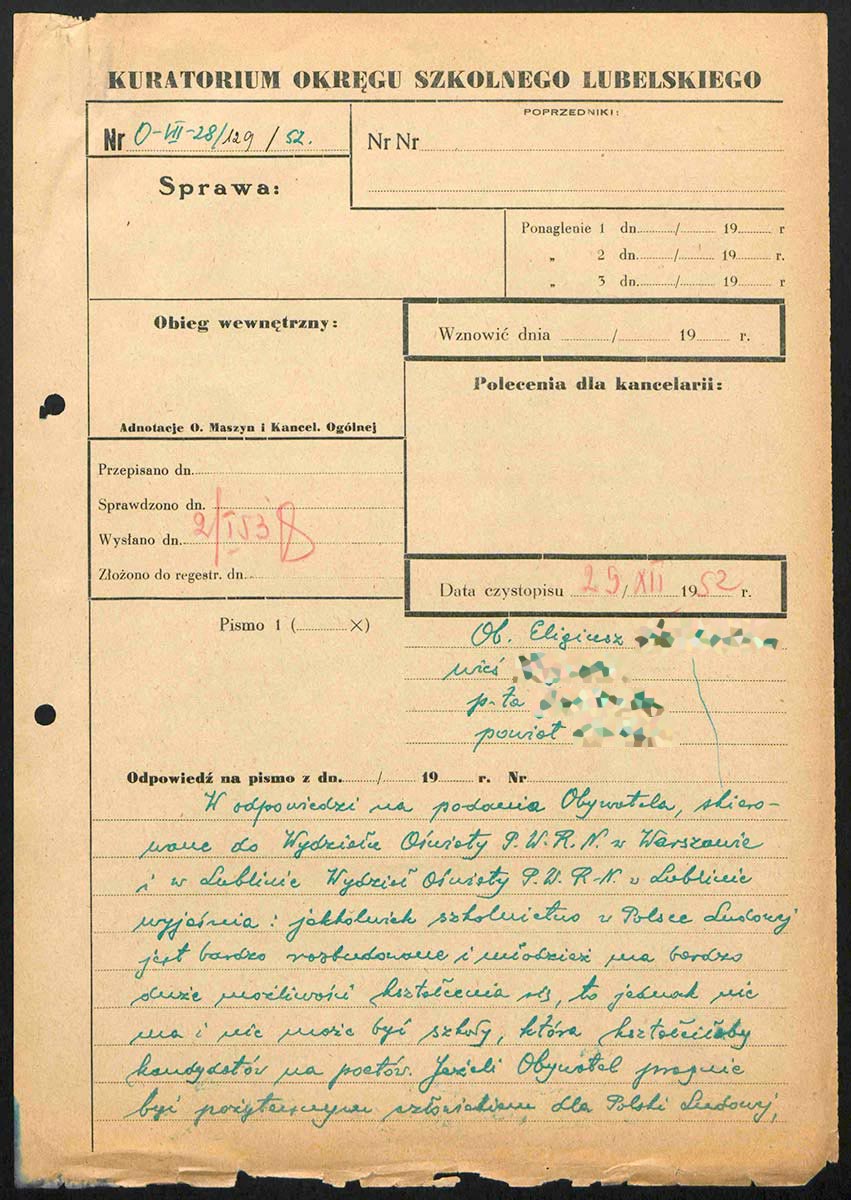 KURATORIUM OKRĘGU SZKOLNEGO LUBELSKIEGO
Nr O-VII-28/129 / 52.
POPRZEDNIKI:
Nr Nr
Sprawa:
Ponaglenie 1 dn. / 19 r
„ 2 dn. / 19 r.
„ 3 dn. / 19 r
Obieg wewnętrzny:
Wznowić dnia / 19 r.
Polecenia dla kancelarii:
Adnotacje O. Maszyn i Kancel. Ogólnej
Przepisano dn.
Sprawdzono dn.
2/I 53
Wysłano dn.
Złożono do regestr. dn.
Data czystopisu 29/XII 1952 r.
Pismo 1 ( ×)
Ob. Eligiusz
wieś
p-ta
powiat
Odpowiedź na pismo z dn. / 19 r. Nr
W odpowiedzi na podania Obywatela, skiero-
wane do Wydziału Oświaty P.W.R.N. w Warszawie
i w Lublinie Wydział Oświaty P.W.R.N. w Lublinie
wyjaśnia: jakkolwiek szkolnictwo w Polsce Ludowej
jest bardzo rozbudowane i młodzież ma bardzo
duże możliwości kształcenia się, to jednak nie
ma i nie może być szkoły, która kształciłaby
kandydatów na poetów. Jeżeli Obywatel pragnie
być pożytecznym człowiekiem dla Polski Ludowej,